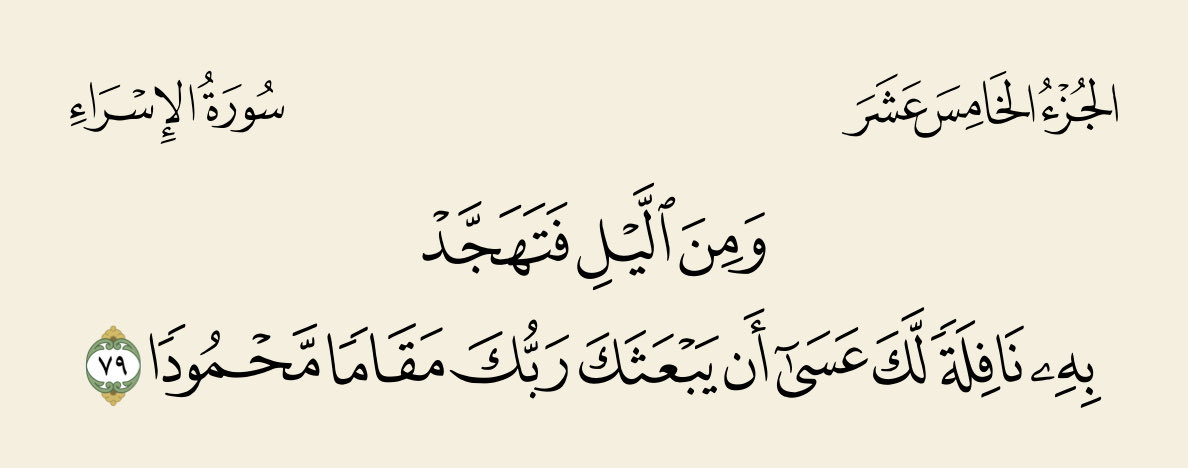 الجُزْءُ الخَامِسَ عَشَرَ سُورَةُ الإِسْرَاءِ
وَمِنَ ٱلَّيۡلِ فَتَهَجَّدۡ
بِهِۦ نَافِلَةٗ لَّكَ عَسَىٰٓ أَن يَبۡعَثَكَ رَبُّكَ مَقَامٗا مَّحۡمُودٗا ٧٩